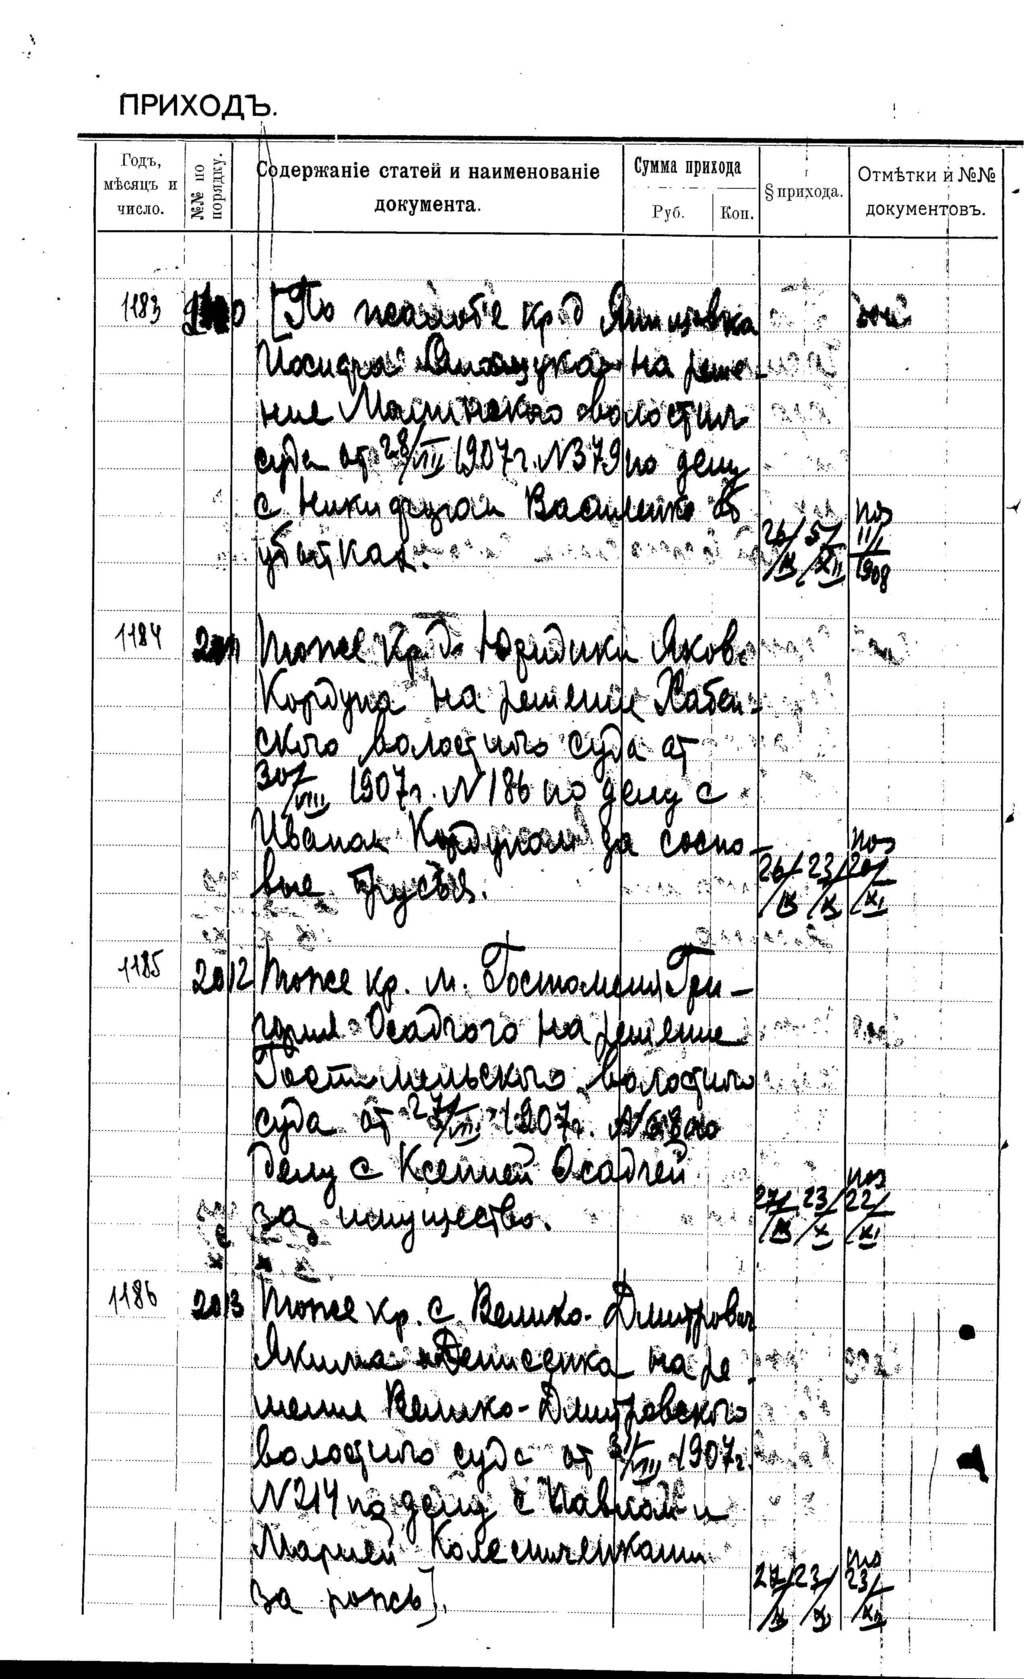 ПРИХОДЪ.
Годъ, мѣсяцъ и число.
№№ по порядку.
Содержаніе статей и наименованіе документа.
Сумма прихода
Руб.
Коп.
§ прихода.
Отмѣтки и №№ документовъ.
1183
[По жалобе кр. д.
на реше-
ние волостного
суда от 28/VIII 1907 г. N 379 по делу
с Никифором Василенко об
убытках.
26/IX 5/XII 11/I 1908
1184
тоже кр. д. Юридики Якова
Кордуна на решение Хабен-
ского волостного суда от
30/VIII 1907 г. N 186 по делу с
Иваном Кордуном за сосно-
вые брусья.
26/IX 23/X 20/XI
1185 2012 тоже кр. м. Гостомеля Гри-
гория Осадчого на решение
Гостомельского волостного
суда от 27/VIII 1907 г. N 68 по
делу с Ксенией Осадчей
за имущество.
27/IX 23/X 22/XI
1186 2013 тоже кр. с. Велико-Дмитрович
Якима Денисенка на ре-
шения Велико-Дмитровского
волостного суда от /VIII 1907 г.
N 214 по делу с Павлом и
Марией Колесниченками
за рожь].
27/IX 23/X 23/XI